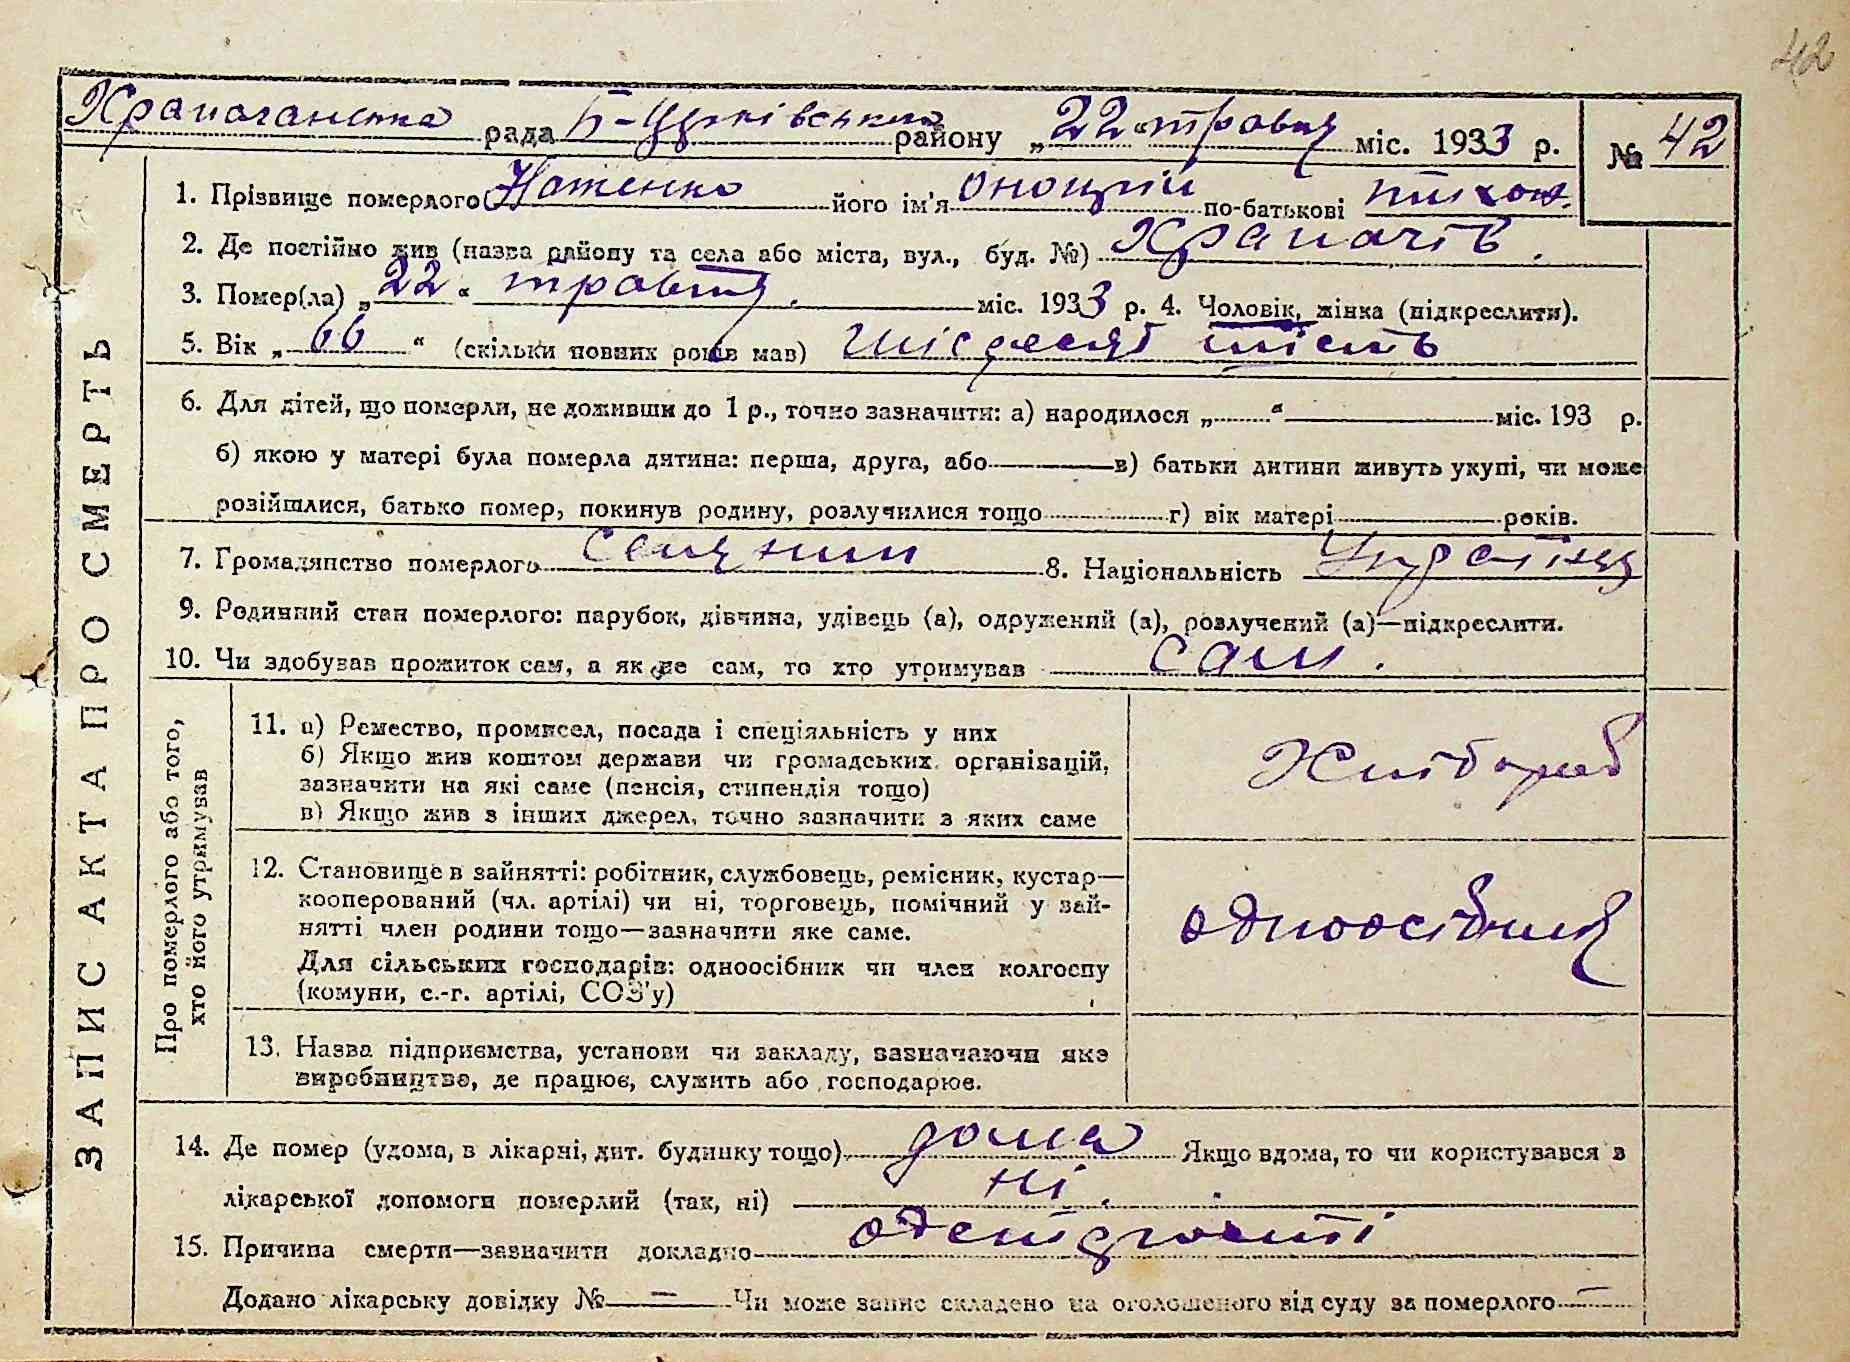 42
Храпачанська рада Б-Церківського району „22“ травня міс. 1933 р. № 42
ЗАПИС АКТА ПРО СМЕРТЬ
1. Прізвище померлого Натенко його ім'я Онопрій по-батькові Тихон.
2. Де постійно жив (назва району та села або міста, вул., буд. №) Храпачів.
3. Помер(ла) „22“ травня. міс. 1933 р. 4. Чоловік, жінка (підкреслити).
5. Вік „66“ (скільки повних років мав) шісдесят шість
6. Для дітей, що померли, не доживши до 1 р., точно зазначити: а) народилося „ “ міс. 193 р.
б) якою у матері була померла дитина: перша, друга, або в) батьки дитини живуть укупі, чи може
розійшлися, батько помер, покинув родину, розлучилися тощо г) вік матері років.
7. Громадянство померлого 8. Національність Українця
9. Родинний стан померлого: парубок, дівчина, удівець (а), одружений (а), розлучений (а)—підкреслити.
10. Чи здобував прожиток сам, а як не сам, то хто утримував сам.
Про померлого або того,
хто його утримував
11. а) Ремество, промисел, посада і спеціяльність у них
б) Якщо жив коштом держави чи громадських організацій,
зазначити на які саме (пенсія, стипендія тощо)
в) Якщо жив з інших джерел, точно зазначити з яких саме
Хлібороб
12. Становище в зайнятті: робітник, службовець, ремісник, кустар—
кооперований (чл. артілі) чи ні, торговець, помічний у зай-
нятті член родини тощо—зазначити яке саме.
Для сільських господарів: одноосібник чи член колгоспу
(комуни, с.-г. артілі, СОЗ'у)
одноосібник
13. Назва підприємства, установи чи закладу, зазначаючи яке
виробництво, де працює, служить або господарює.
14. Де помер (удома, в лікарні, дит. будинку тощо) дома Якщо вдома, то чи користувався з
лікарської допомоги померлий (так, ні) ні.
15. Причина смерти—зазначити докладно
Додано лікарську довідку № — Чи може запис складено на оголошеного від суду за померлого —